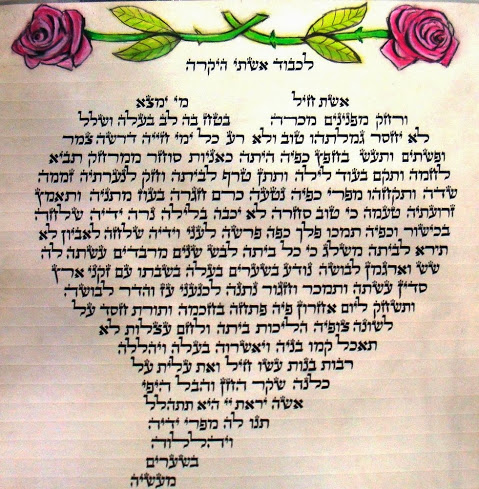 לכבוד אשתי היקרה
אשת חיל מי ימצא
ורחק מפנינים מכרה בטח בה לב בעלה ושלל
לא יחסר גמלתהו טוב ולא רע כל ימי חייה דרשה צמר
ופשתים ותעש בחפץ כפיה היתה כאניות סוחר ממרחק תביא
לחמה ותקם בעוד לילה ותתן טרף לביתה וחק לנערתיה זממה
שדה ותקחהו מפרי כפיה נטעה כרם חגרה בעוז מתניה ותאמץ
זרועתיה טעמה כי טוב סחרה לא יכבה בלילה נרה ידיה שלחה
בכישור וכפיה תמכו פלך כפה פרשה לעני וידיה שלחה לאביון לא
תירא לביתה משלג כי כל ביתה לבש שנים מרבדים עשתה לה
שש וארגמן לבושה נודע בשערים בעלה בשבתו עם זקני ארץ
סדין עשתה ותמכר וחגור נתנה לכנעני עז והדר לבושה
ותשחק ליום אחרון פיה פתחה בחכמה ותורת חסד על
לשונה צופיה הליכות ביתה ולחם עצלות לא
תאכל קמו בניה ויאשרוה בעלה ויהללה
רבות בנות עשו חיל ואת עלית על
כלנה שקר החן והבל היפי
אשה יראת יי היא תתהלל
תנו לה מפרי ידיה
ויהללוה
בשערים
מעשיה